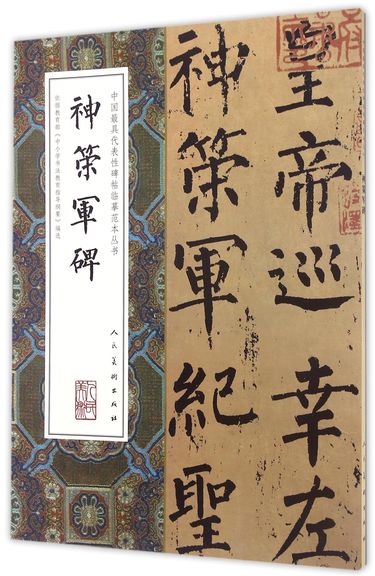 皇帝巡幸左
神策軍紀聖
中国最具代表性碑帖临摹范本丛书
神策軍碑
依据教育部《中小学书法教育指导纲要》编选
人民美術出版社